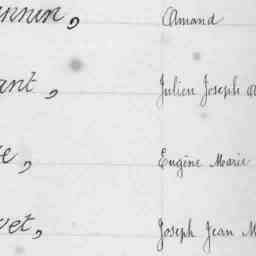 Amand
ant, Julien Joseph
e, Eugène Marie
vet, Joseph Jean M